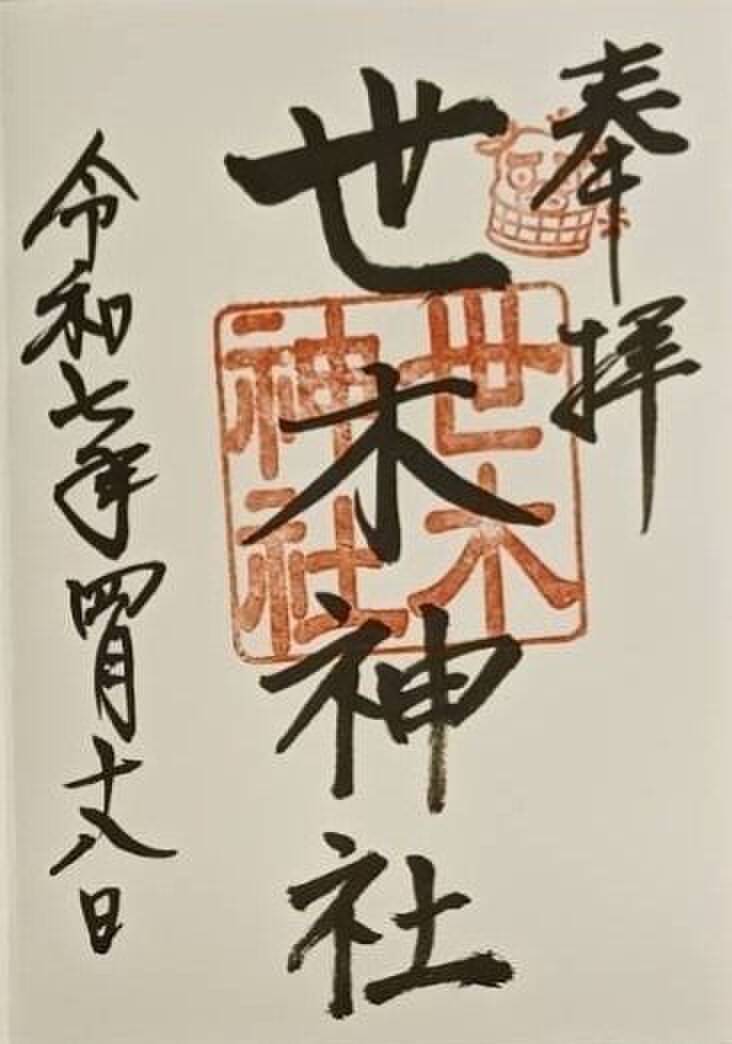 奉拝
世木神社
世木
神社
令和七年四月十八日